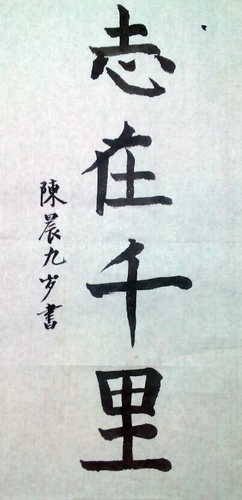 志在千里
陳晨九岁書